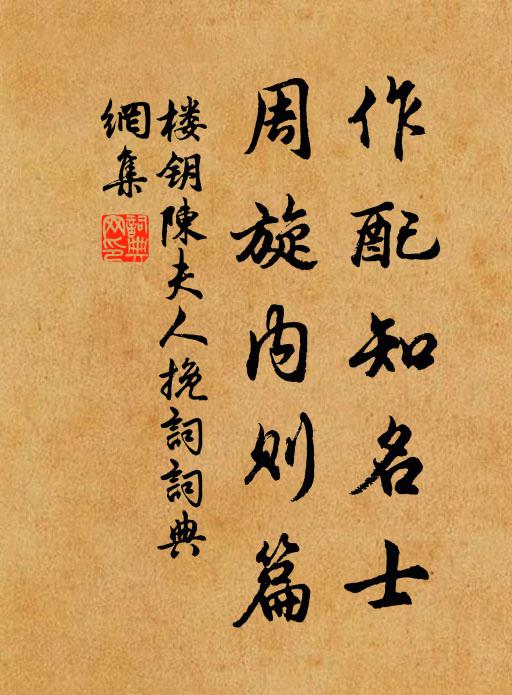 作配知名士
周旋内则篇
楼钥陳夫人挽詞詞典
網集
詞典
网印